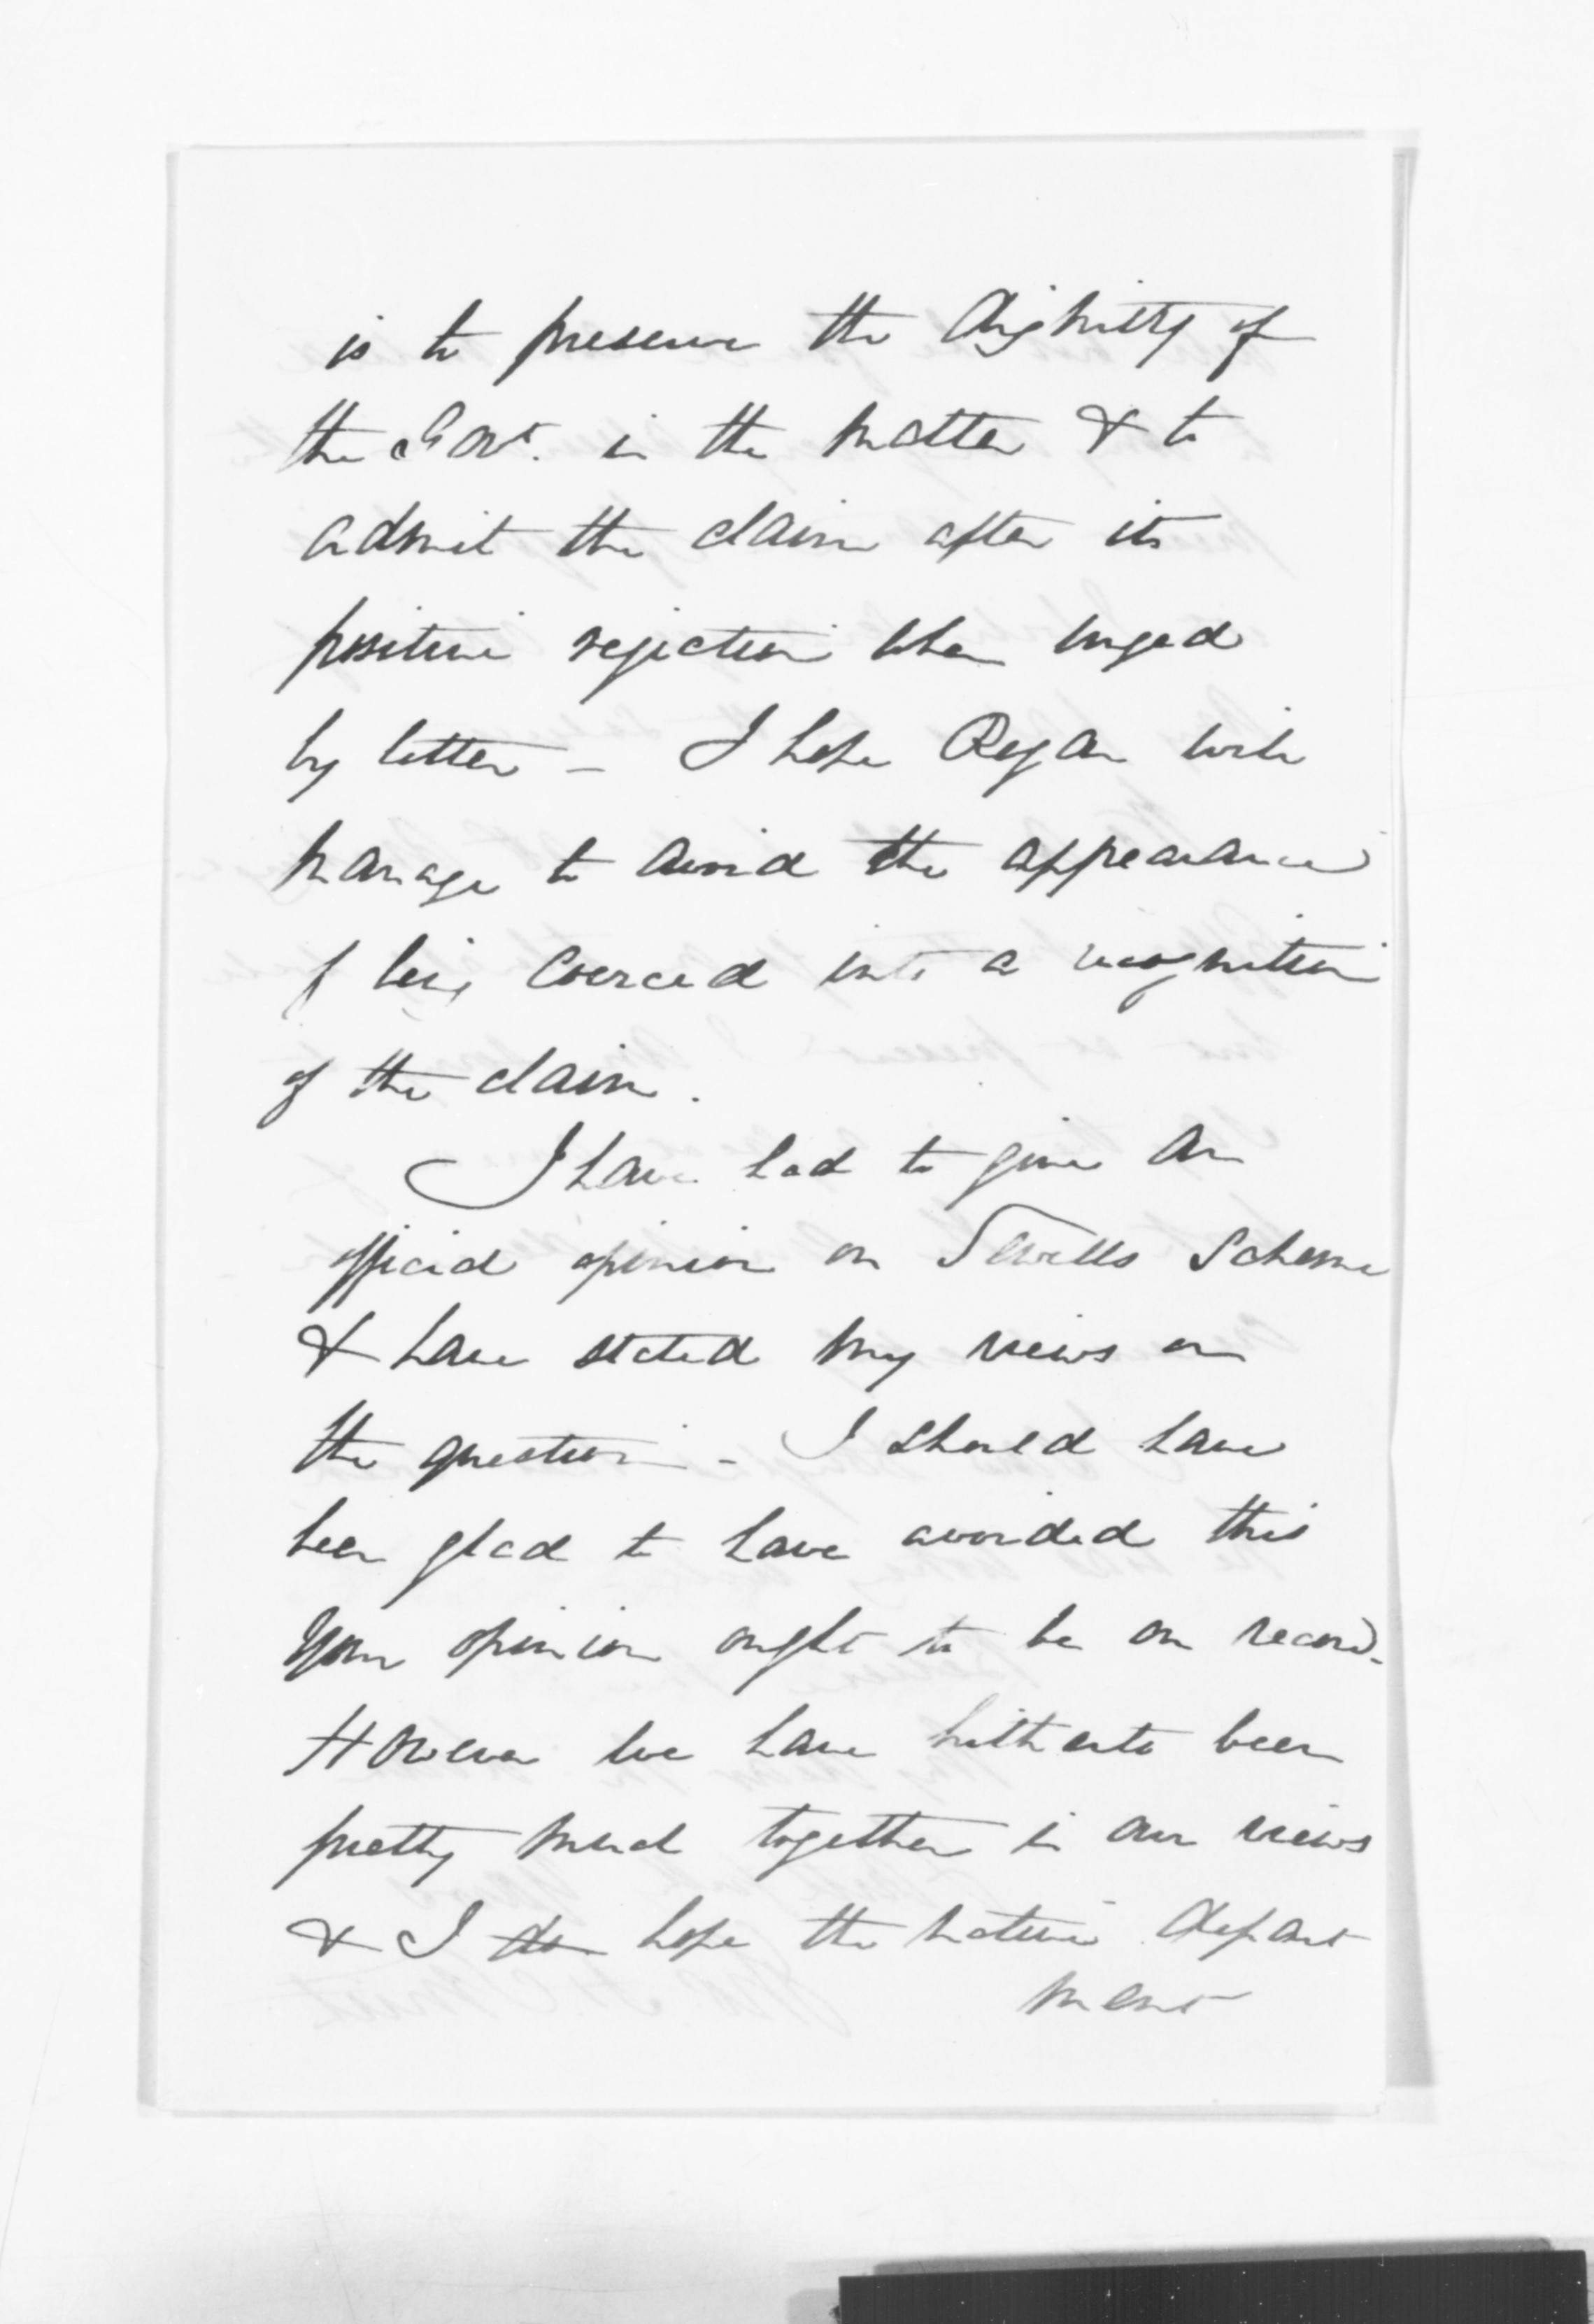 is to preserve the dignity of
the Govt. in the matter & to
admit the claim after its
positive rejection when urged
by letter - I hope Rogan will
manage to avoid the appearance
of being coerced into a recognition
of the claim.
I have had to give an
official opinion on Sewells Scheme
& have stated my views on
the question - I should have
been glad to have avoided this
Your opinion ought to be on record.
However we have hitherto been
pretty much together in our views
& I do hope the native depart
ment